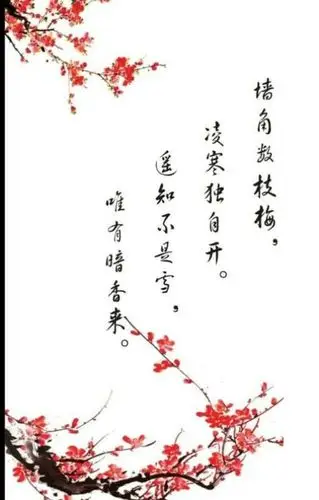 墙角数枝梅，
凌寒独自开。
遥知不是雪，
唯有暗香来。